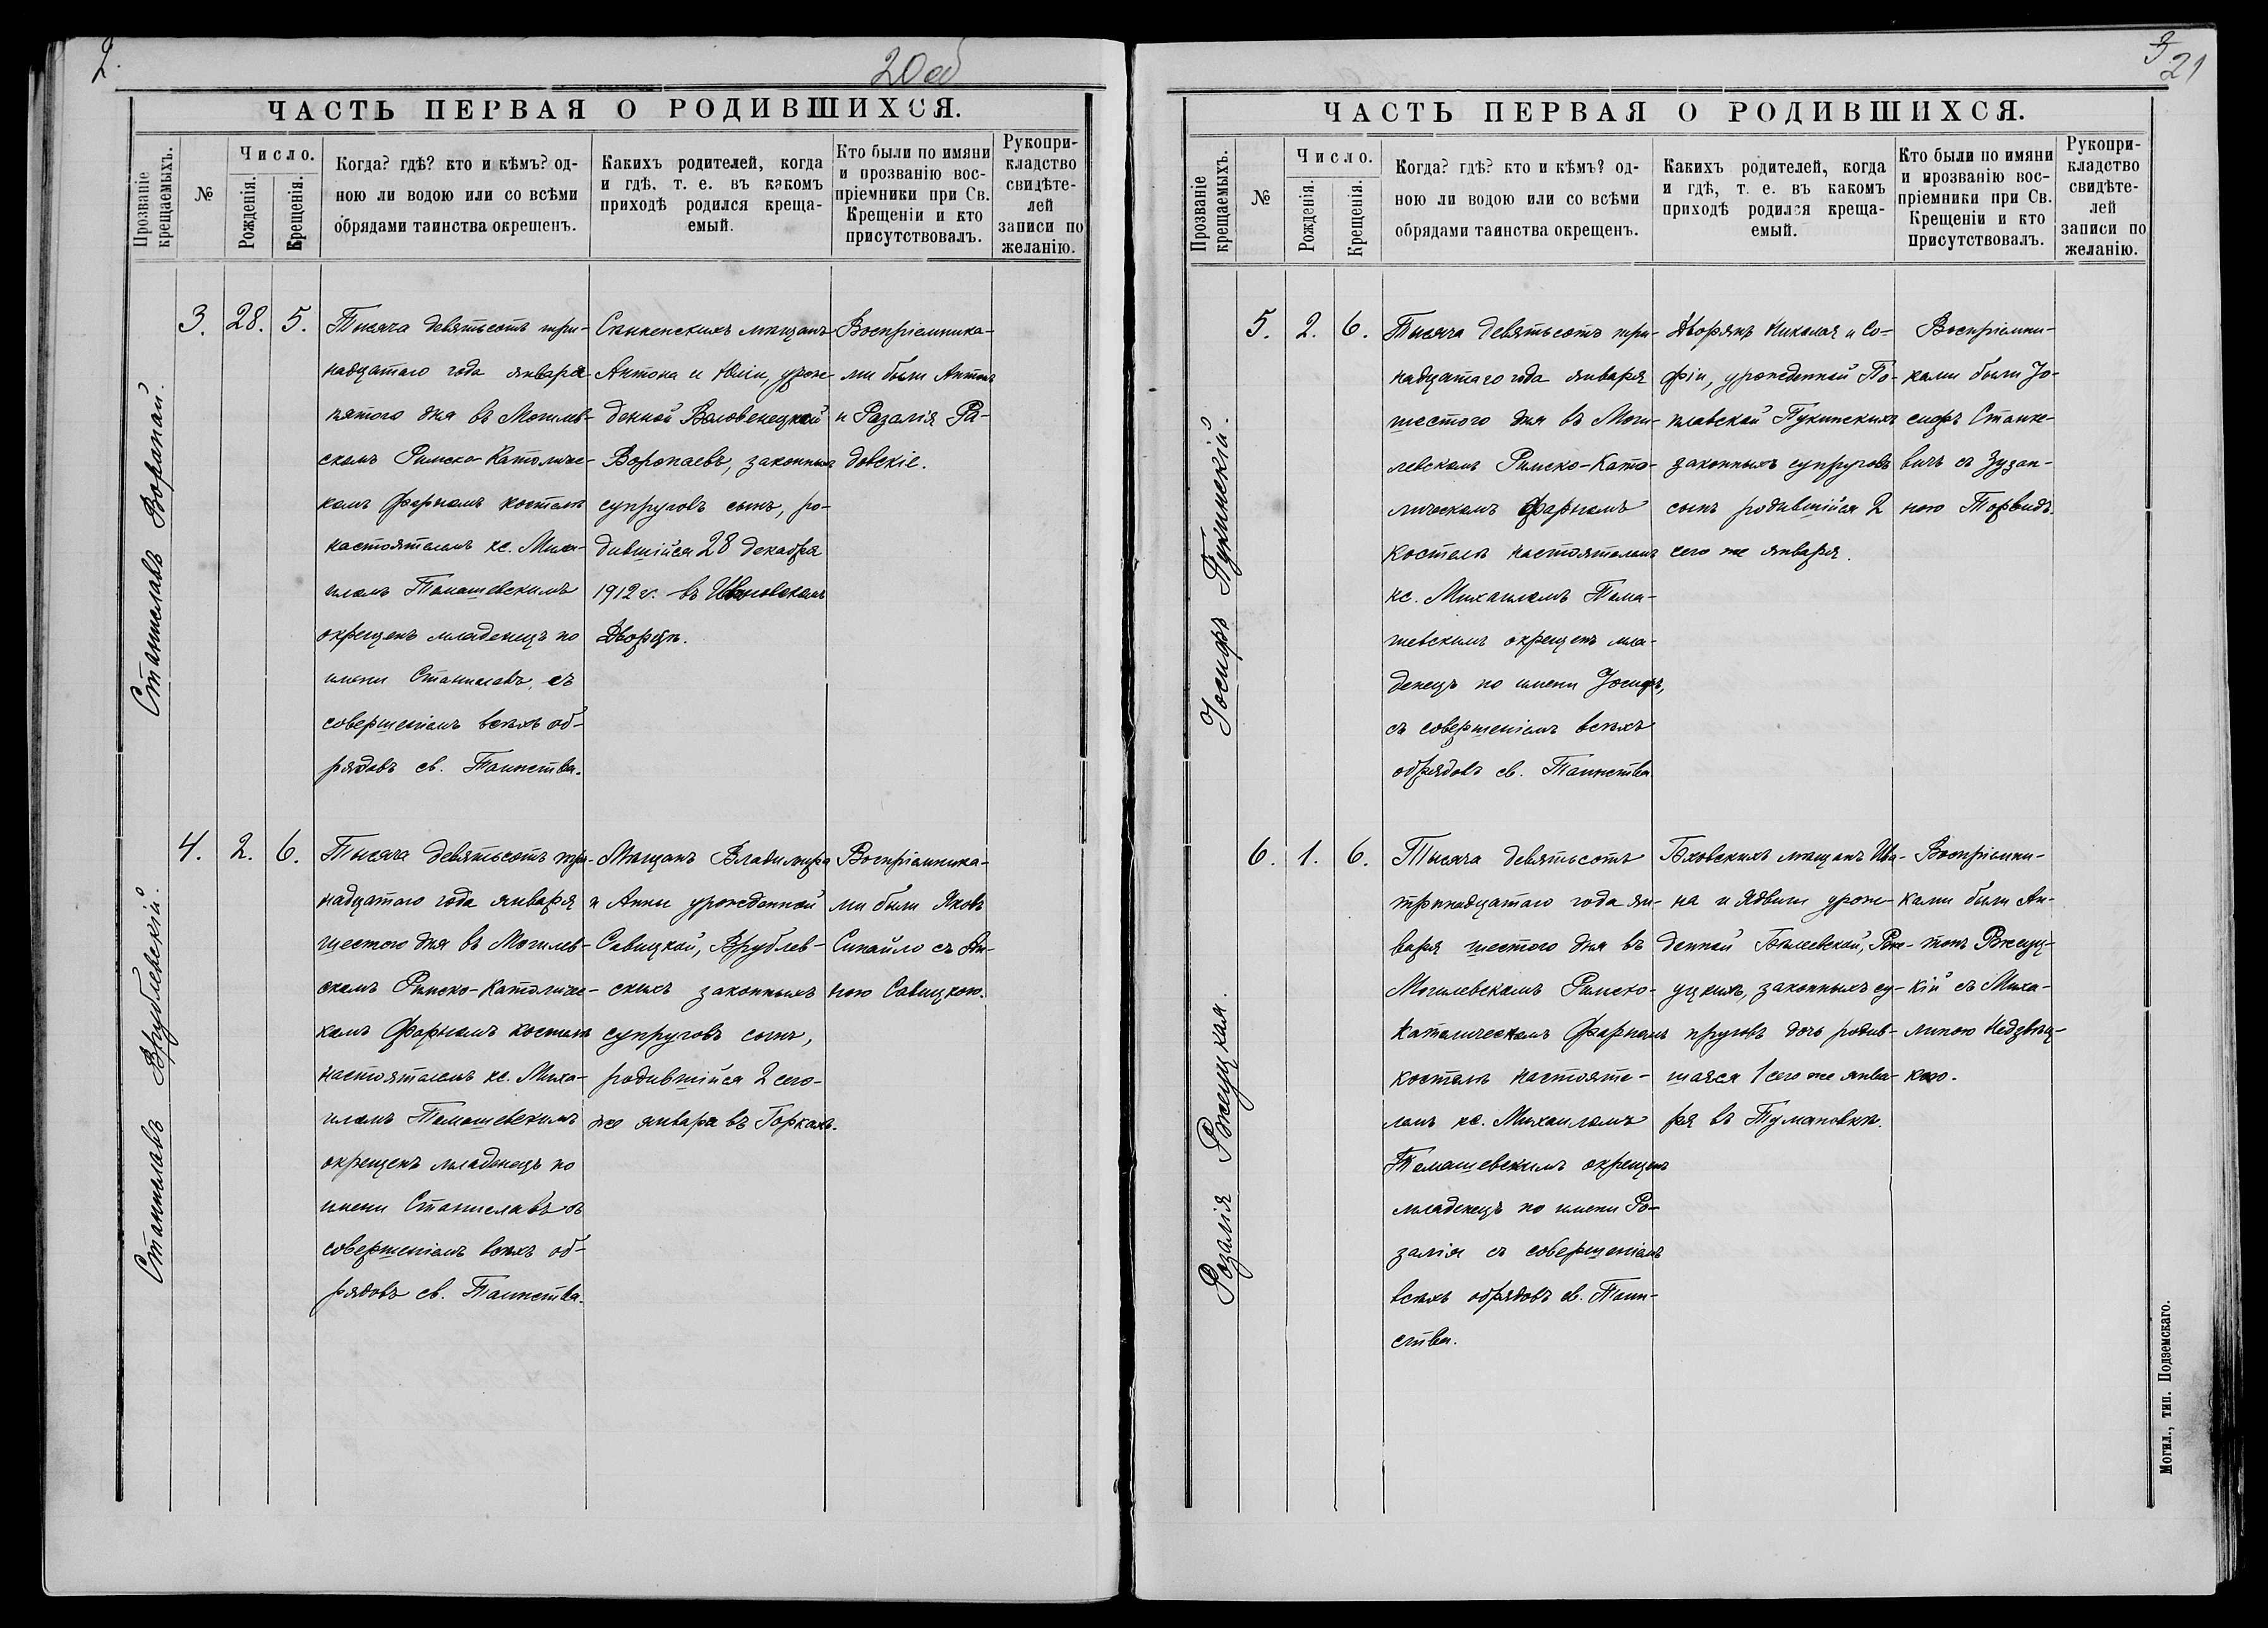 2.
20 об
ЧАСТЬ ПЕРВАЯ О РОДИВШИХСЯ.
Прозваніе крещаемыхъ.
№
Число.
Рожденія.
Крещенія.
Когда? гдѣ? кто и кѣмъ? од-
ною ли водою или со всѣми
обрядами таинства окрещенъ.
Какихъ родителей, когда
и гдѣ, т. е. въ какомъ
приходѣ родился креща-
емый.
Кто были по имяни
и прозванію вос-
пріемники при Св.
Крещеніи и кто
присутствовалъ.
Рукопри-
кладство
свидѣте-
лей
записи по
желанію.
Станиславъ Воропай.
3.
28.
5.
Тысяча девятьсотъ три-
надцатаго года января
пятого дня въ Могилев-
скомъ Римско-Католиче-
комъ Фарномъ костелѣ
настоятелемъ кс. Миха-
иломъ Томашевскимъ
окрещенъ младенецъ по
имени Станиславъ, съ
совершеніемъ всѣхъ об-
рядовъ св. Таинства.
Антона и Юліи, урож-
денной
Воропаевъ, законныхъ
супруговъ сынъ, ро-
дившійся 28 декабря
1912 г. въ
Дворцѣ.
Воспріемника-
ми были Антонъ
и Розалія Ра-
довскіе.
Станиславъ Врублевскій.
4.
2.
6.
Тысяча девятьсотъ три-
надцатаго года января
шестого дня въ Могилев-
скомъ Римско-Католиче-
комъ Фарномъ костелѣ
настоятелемъ кс. Миха-
иломъ Томашевскимъ
окрещенъ младенецъ по
имени Станиславъ съ
совершеніемъ всѣхъ об-
рядовъ св. Таинства.
Мѣщанъ Владиміра
и Анны урожденной
Савицкой, Врублев-
скихъ законныхъ
супруговъ сынъ,
родившійся 2 сего-
же января въ Горкахъ.
Воспріемника-
ми были Яковъ
Синайло съ Ан-
ною Савицкою.
3
21
ЧАСТЬ ПЕРВАЯ О РОДИВШИХСЯ.
Прозваніе крещаемыхъ.
№
Число.
Рожденія.
Крещенія.
Когда? гдѣ? кто и кѣмъ? од-
ною ли водою или со всѣми
обрядами таинства окрещенъ.
Какихъ родителей, когда
и гдѣ, т. е. въ какомъ
приходѣ родился креща-
емый.
Кто были по имяни
и прозванію вос-
пріемники при Св.
Крещеніи и кто
присутствовалъ.
Рукопри-
кладство
свидѣте-
лей
записи по
желанію.
Іосифъ Пукинскій.
5.
2.
6.
Тысяча девятьсотъ три-
надцатаго года января
шестого дня въ Моги-
левскомъ Римско-Като-
лическомъ Фарномъ
костелѣ настоятелемъ
кс. Михаиломъ Тома-
шевскимъ окрещенъ мла-
денецъ по имени Іосифъ,
съ совершеніемъ всѣхъ
обрядовъ св. Таинства.
Дворянъ Николая и Со-
фіи, урожденной По-
плавской Пукинскихъ
законныхъ супруговъ
сынъ родившійся 2
сего же января.
Воспріемни-
ками были Іо-
сифъ Станке-
вичъ съ Зузан-
ною Торвидъ.
Розалія Ржецукая.
6.
1.
6.
Тысяча девятьсотъ
тринадцатаго года ян-
варя шестого дня въ
Могилевскомъ Римско-
Католическомъ Фарномъ
костелѣ настояте-
лемъ кс. Михаиломъ
Томашевскимъ окрещенъ
младенецъ по имени Ро-
залія съ совершеніемъ
всѣхъ обрядовъ св. Таин-
ства.
мѣщанъ Ива-
на и Ядвиги урож-
денной
законныхъ су-
пруговъ дочь родив-
шаяся 1 сего же янва-
ря въ Тумановкѣ.
Воспріемни-
ками были Ан-
тонъ
съ Миха-
линою Недзвѣц-
кою.
Могил., тип. Подземскаго.